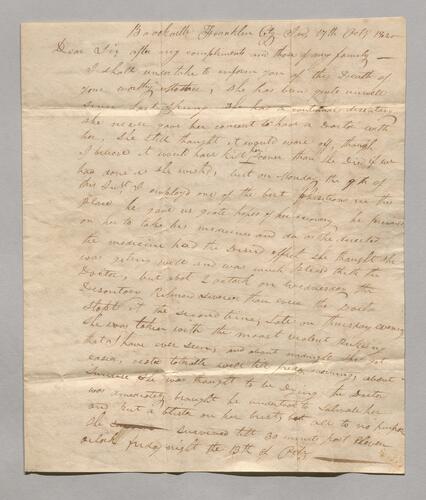 Brookville Franklin Cty Ind 17th Feby 1820
Dear Sir after my compliments and those of my family —
I shall undertake to inform you of the Death of
your worthy Mother, She has been quite unwell
Since last Spring She had a continual disentery
she never gave her consent to have a Doctor with
her, She still thought it would wore off, though
I believe it would have kill her sooner than she Died if we
had done as she wished, but on Monday the 9th of
this Inst I employd one of the best Phisitions in this
place he gave us great hopes of her recovery he prevaild
on her to take his medicine and do as he directed
the medicine had the Desired effect She thought she
was getting well and was much pleasd with the
Doctor, but abot 2 oclock on Wednesday the
Disentery Returnd Severer than ever the Doctor
Stopt it the second time, late on Thursday evening
She was taken with the moast violent Pukeing
that I have ever seen, and about midnight she got
easier, rested tolerable well till friday morning, about
Sunrise She was thought to be Dying the Doctor
was amediately brought he undertook to Salivate her
and Put a blister on her brest, but all to no purpose
She Survived till 30 minuts past Eleven
oclock friday night the 13th of Feby